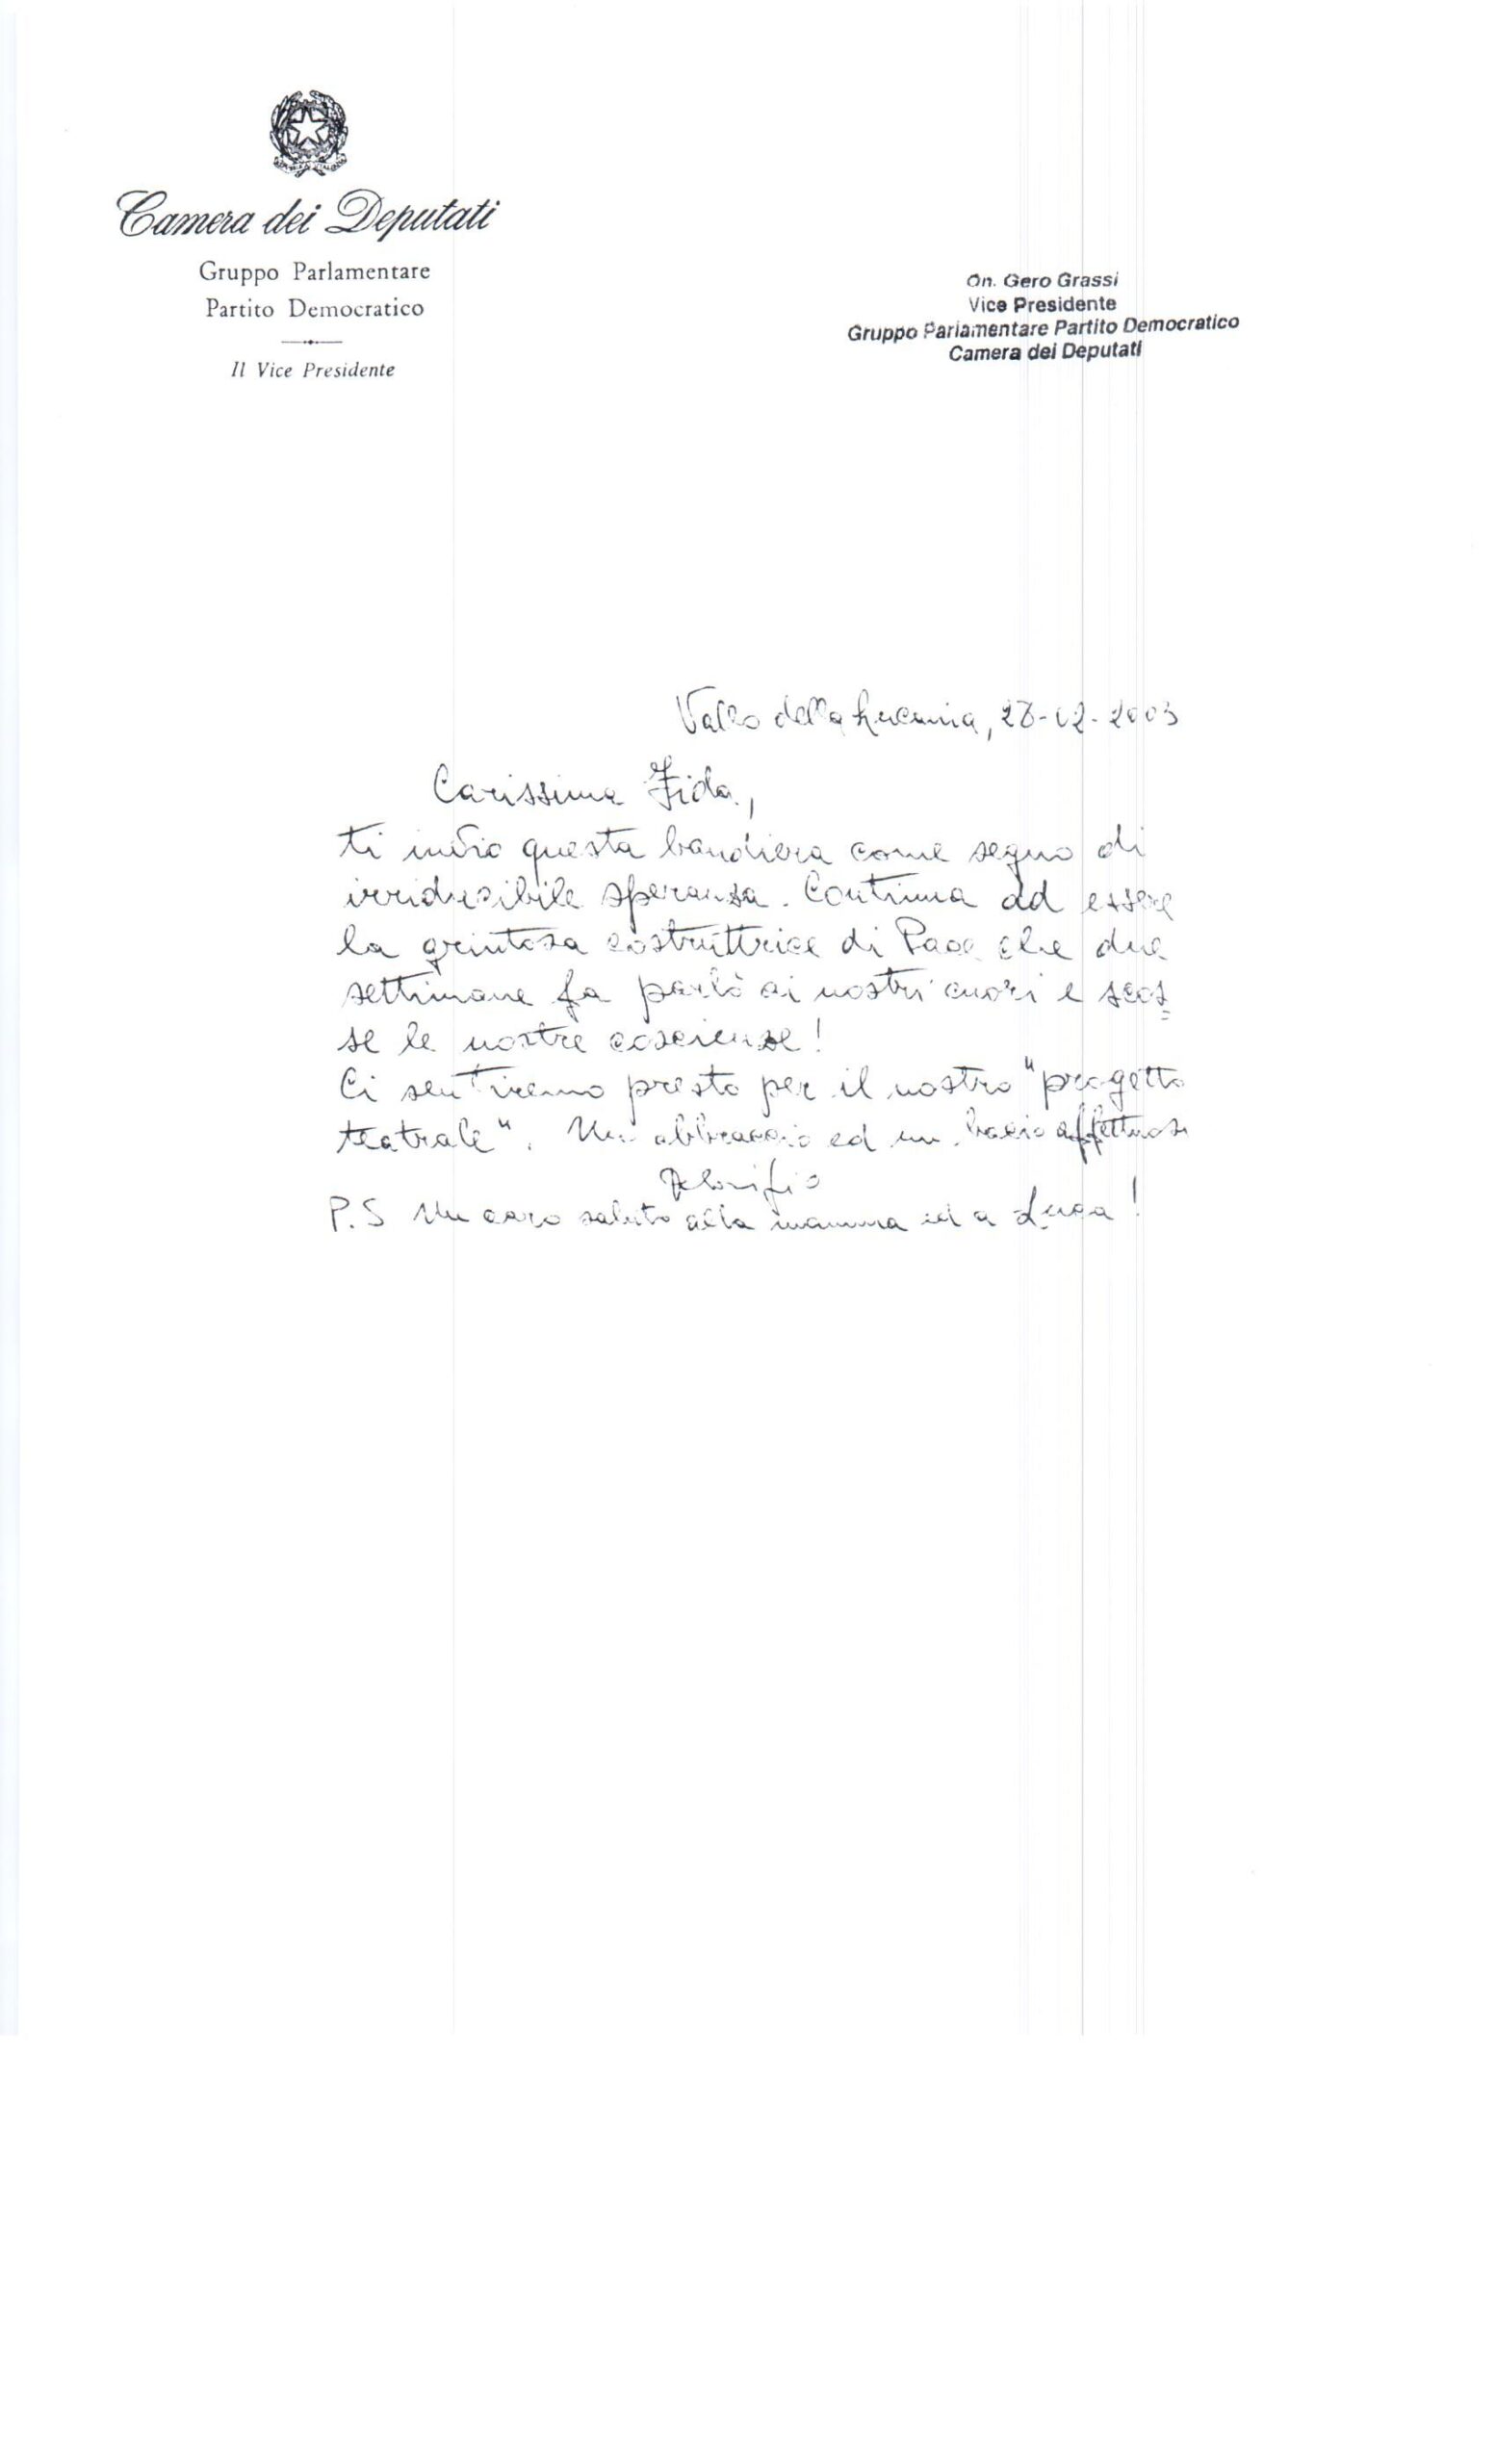 Camera dei Deputati
Gruppo Parlamentare
Partito Democratico
Il Vice Presidente
On. Gero Grassi
Vice Presidente
Gruppo Parlamentare Partito Democratico
Camera dei Deputati
Vallo della Lucania, 28-02-2003
Carissima Fida,
ti invio questa bandiera come segno di
irriducibile speranza. Continua ad essere
la grintosa costruttrice di Pace che due
settimane fa parlò ai nostri cuori e scos=
se le nostre coscienze!
Ci sentiremo presto per il nostro "progetto
teatrale". Un abbraccio ed un bacio affettuosi
P.S Un caro saluto alla mamma ed a Luca!